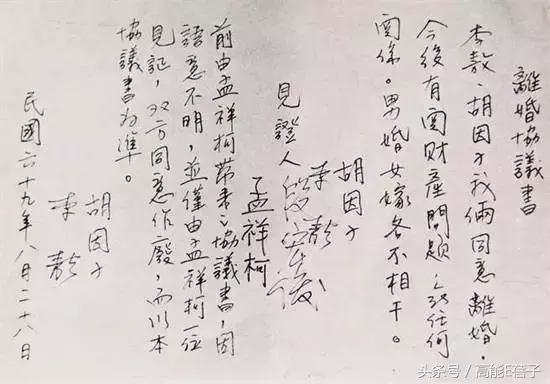 離婚協議書
李敖、胡因子我倆同意離婚,
今後有関財產問題 任何
関係。男婚女嫁各不相干。
胡因子
李敖
見證人段宏俊
孟祥柯
前由孟祥柯帶来之協議書,因
語意不明,並僅由孟祥柯一位
見証,双方同意作廢,而以本
協議書为準。
胡因子
李敖
民國六十九年八月二十八日
头条号 / 高能E蓓子